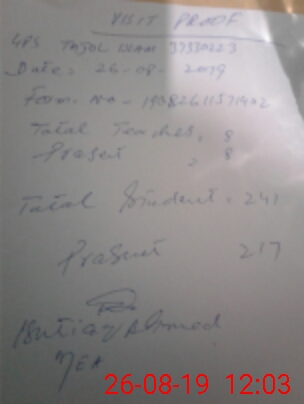 VISIT PROOF
GPS TAJOL 37330223
Date: 26-08-2019
Form. No - 19082611571402
Total Teaches, 8
Prasent , 8
Total Student. 241
Prasent 217
Imtiaz Ahmed
MEA
26-08-19 12:03